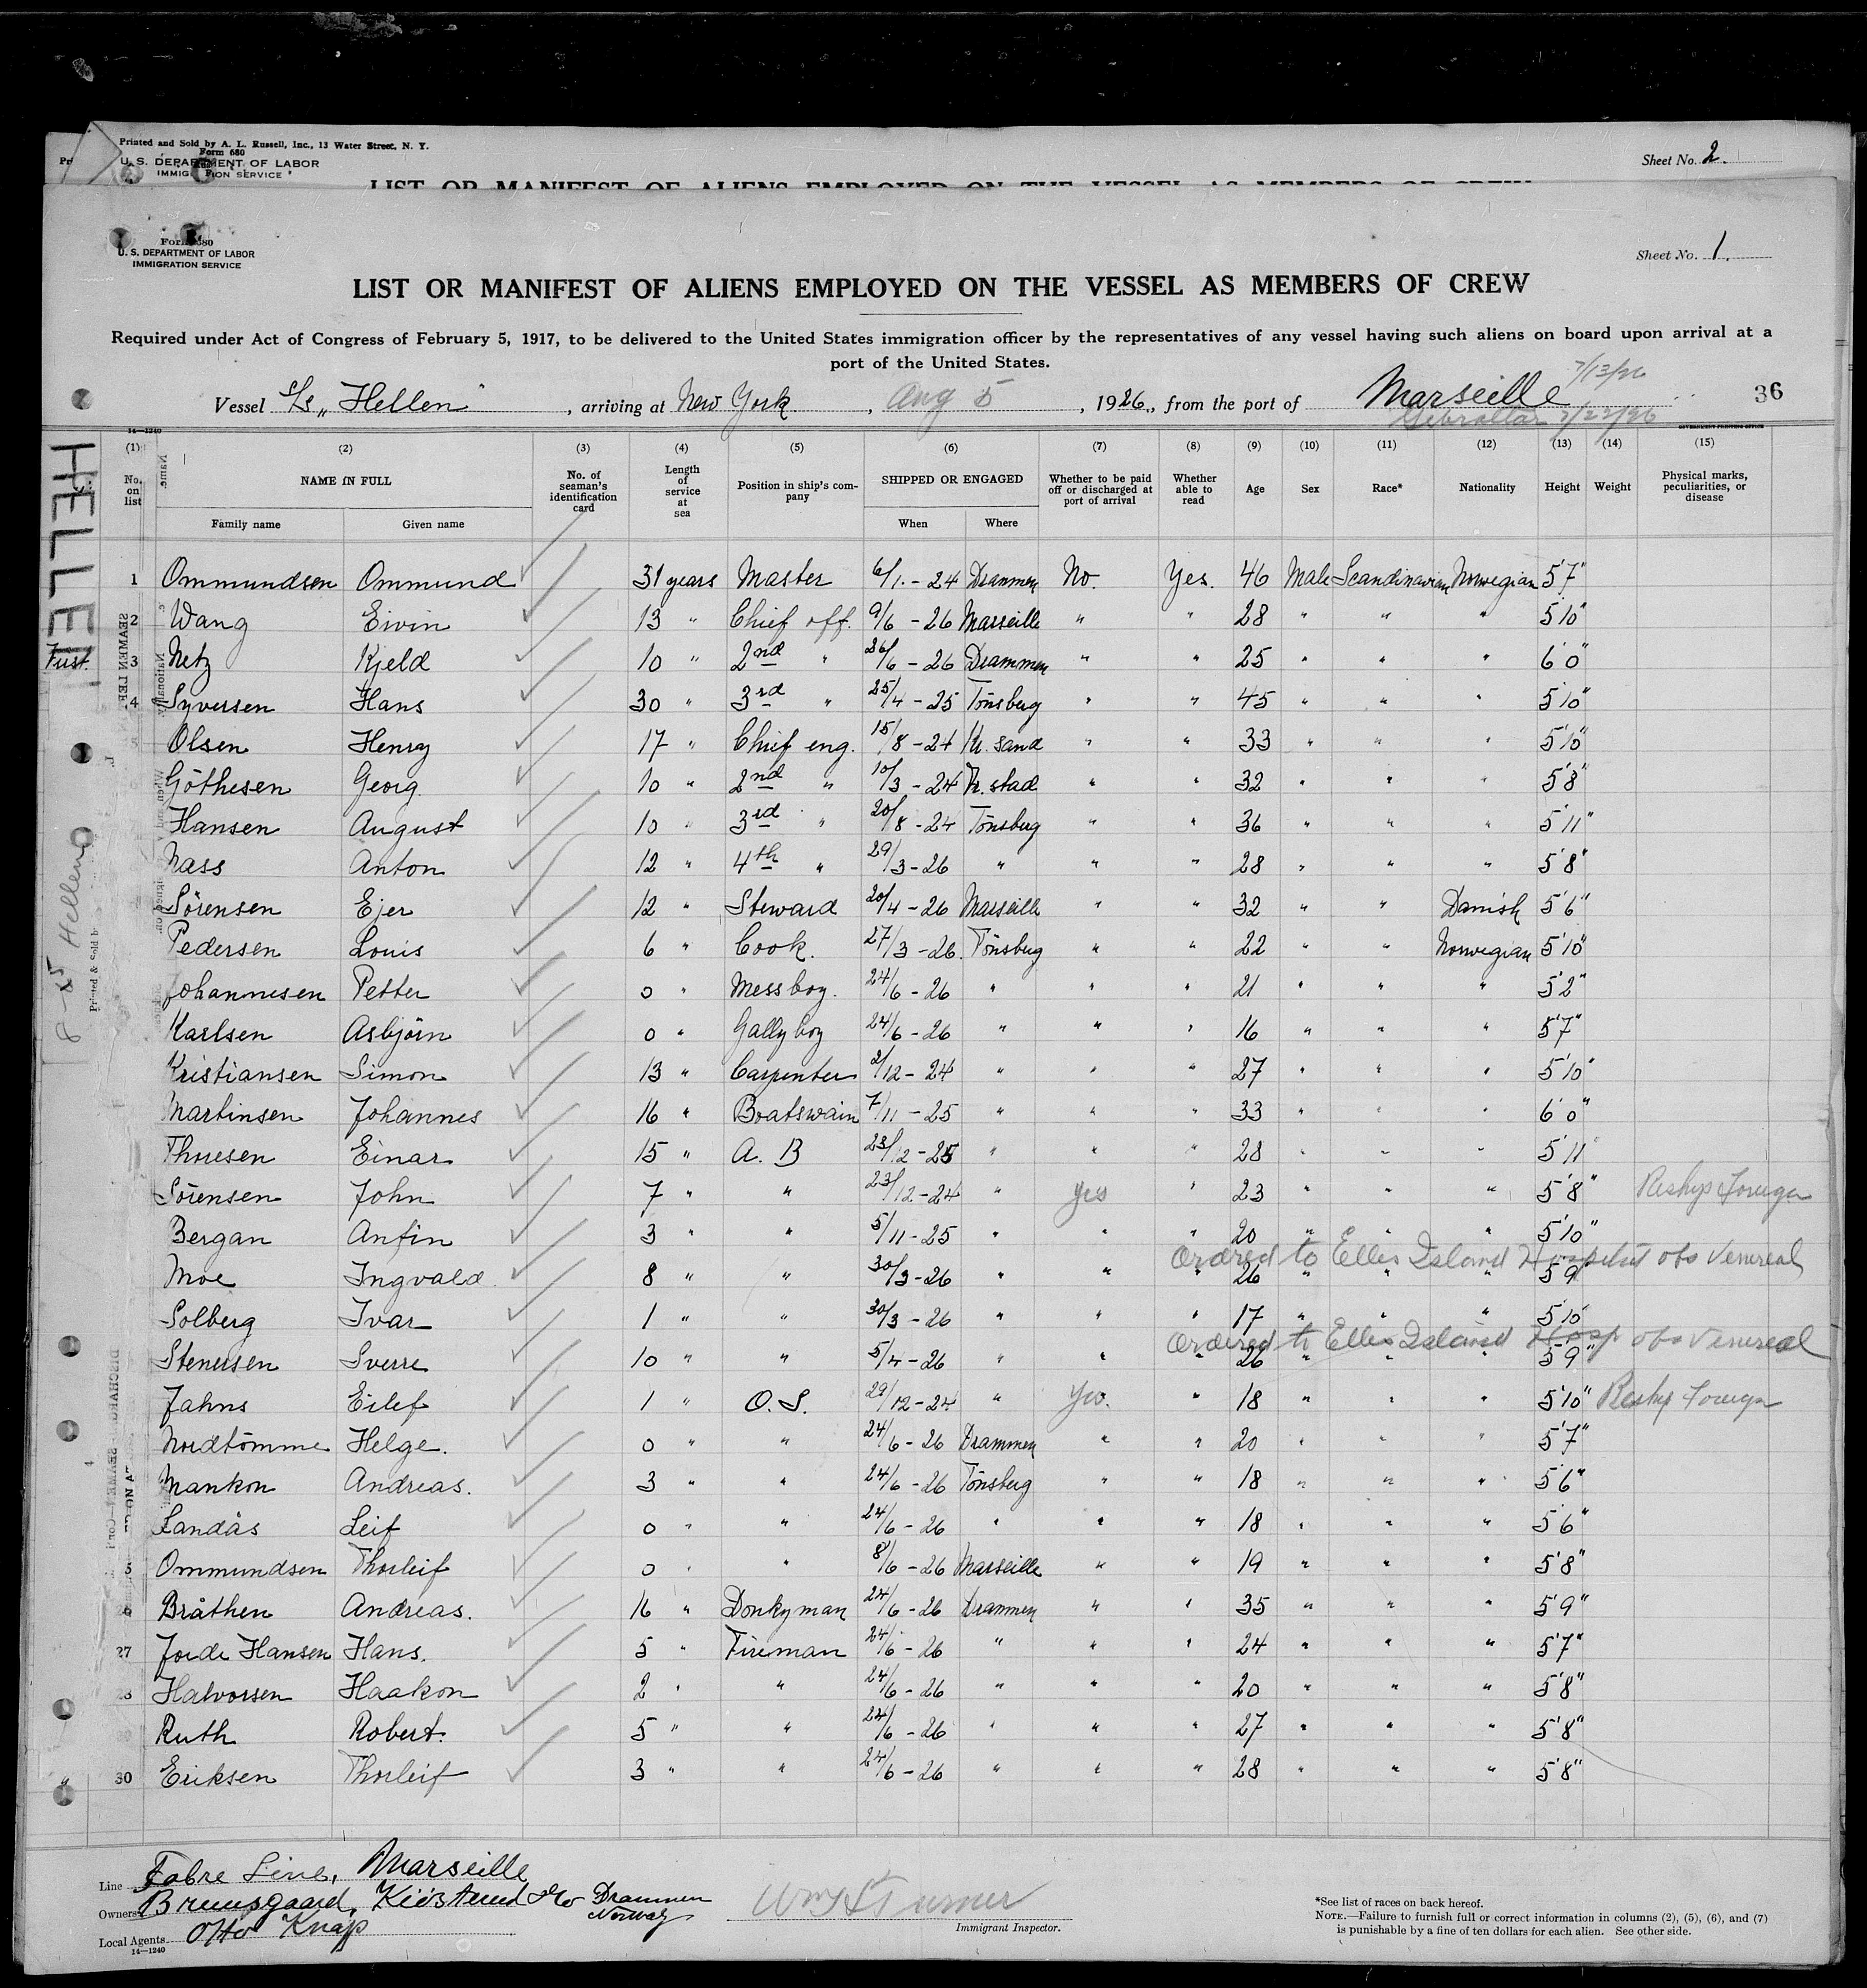 Printed and Sold by A. L. Russell, Inc., 13 Water Street, N. Y.
Form 680
U. S. DEPARTMENT OF LABOR
IMMIGRATION SERVICE
Sheet No. 2.
LIST OR MANIFEST OF ALIENS EMPLOYED ON THE VESSEL AS MEMBERS OF CREW
Form 680
U. S. DEPARTMENT OF LABOR
IMMIGRATION SERVICE
Sheet No. 1.
LIST OR MANIFEST OF ALIENS EMPLOYED ON THE VESSEL AS MEMBERS OF CREW
Required under Act of Congress of February 5, 1917, to be delivered to the United States immigration officer by the representatives of any vessel having such aliens on board upon arrival at a
port of the United States.
7/13/26
Vessel S/s "Hellen", arriving at New York, Aug 5, 1926, from the port of Marseille 36
Gibraltar 7/22/26
14—1240 GOVERNMENT PRINTING OFFICE
HELLEN
(1) (2) (3) (4) (5) (6) (7) (8) (9) (10) (11) (12) (13) (14) (15)
No. on list NAME IN FULL No. of seaman's identification card Length of service at sea Position in ship's company SHIPPED OR ENGAGED Whether to be paid off or discharged at port of arrival Whether able to read Age Sex Race* Nationality Height Weight Physical marks, peculiarities, or disease
Family name Given name When Where
1 Ommundsen Ommund 31 years Master 6/1. - 24 Drammen No. Yes. 46 Male Scandinavian Norwegian 5'7"
2 Wang Eivin 13 " Chief off. 9/6 - 26 Marseille " " 28 " " " 5'10"
3 Netz Kjeld 10 " 2nd " 26/6 - 26 Drammen " " 25 " " " 6'0"
4 Syversen Hans 30 " 3rd " 25/4 - 25 Tönsberg " " 45 " " " 5'10"
Olsen Henry 17 " Chief eng. 15/8 - 24 Kr. sand " " 33 " " " 5'10"
Göthesen Georg 10 " 2nd " 10/3 - 24 Fr. stad " " 32 " " " 5'8"
Hansen August 10 " 3rd " 20/8 - 24 Tönsberg " " 36 " " " 5'11"
Nass Anton 12 " 4th " 29/3 - 26 " " " 28 " " " 5'8"
Sörensen Ejer 12 " Steward 20/4 - 26 Marseille " " 32 " " Danish 5'6"
Pedersen Louis 6 " Cook. 27/3 - 26. Tönsberg " " 22 " " Norwegian 5'10"
Johannesen Petter 0 " Messboy. 24/6 - 26 " " " 21 " " " 5'2"
Karlsen Asbjörn 0 " Gallyboy 24/6 - 26 " " " 16 " " " 5'7"
Kristiansen Simon 13 " Carpenter 2/12 - 24 " " " 27 " " " 5'10"
Martinsen Johannes 16 " Boatswain 7/11 - 25 " " " 33 " " " 6'0"
Thoresen Einar 15 " A. B 23/12 - 25 " " " 28 " " " 5'11
Sörensen John 7 " " 23/12 - 24 " Yes " 23 " " " 5'8" Reship Foreign
Bergan Anfin 3 " " 5/11 - 25 " " " 20 " " " 5'10"
Ordred to Ellis Island Hospital obs Venereal
Moe Ingvald 8 " " 30/3 - 26 " " " 26 " " " 5'9
Solberg Ivar 1 " " 30/3 - 26 " " " 17 " " " 5'10
Ordered to Ellis Island Hosp obs Venereal
Stenersen Sverre 10 " " 5/4 - 26 " " " 26 " " " 5'9"
Jahns Eilef 1 " O. S. 29/12 - 24 " Yes. " 18 " " " 5'10" Reship Foreign
Nordtömme Helge. 0 " " 24/6 - 26 Drammen " " 20 " " " 5'7"
Mankon Andreas. 3 " " 24/6 - 26 Tönsberg " " 18 " " " 5'6"
Landås Leif 0 " " 24/6 - 26 " " " 18 " " " 5'6"
5 Ommundsen Thorleif 0 " " 8/6 - 26 Marseille " " 19 " " " 5'8"
Bråthen Andreas. 16 " Donkyman 24/6 - 26 Drammen " " 35 " " " 5'9"
27 Jorde Hansen Hans. 5 " Fireman 24/6 - 26 " " " 24 " " " 5'7"
28 Halvorsen Haakon 2 " " 24/6 - 26 " " " 20 " " " 5'8"
Ruth Robert. 5 " " 24/6 - 26 " " " 27 " " " 5'8"
30 Eriksen Thorleif 3 " " 24/6 - 26 " " " 28 " " " 5'8"
8-25 Hellen
Line Fabre Line, Marseille
Owners Bruusgaard, Kiösterud & Co Drammen Norway
Local Agents Otto Knap
14—1240
Wm H Turner
Immigrant Inspector.
*See list of races on back hereof.
NOTE.—Failure to furnish full or correct information in columns (2), (5), (6), and (7)
is punishable by a fine of ten dollars for each alien. See other side.